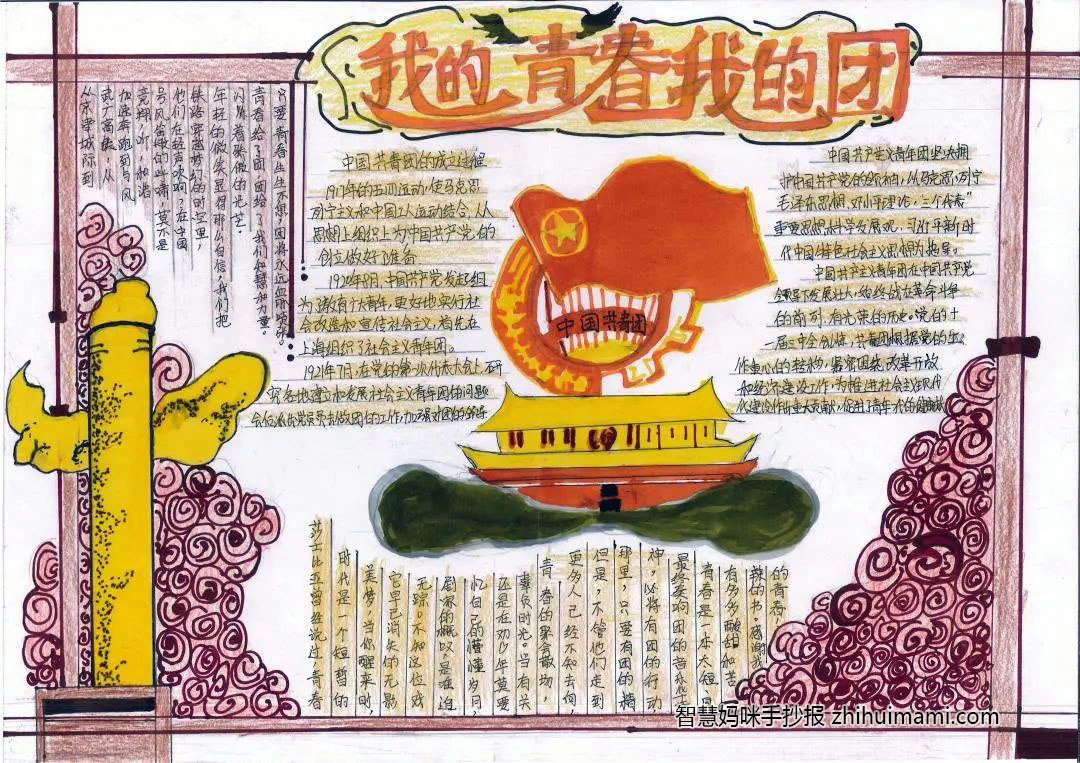 我的青春我的团
从京津城际到
武广高铁，从
加速奔跑到与风
竞翔！听，和谐
号风笛的呼啸，莫不是
他们在轻声吹响？在中国
铁路穿越梦幻的时空里，
年轻的微笑显得那么自信，我们把
闪烁着骄傲的光芒。
青春给了团，团给了我们智慧和力量。
只要青春生生不息，团将永远血脉喷张。
中国共青团的成立过程
1919年的五四运动，使马克思
列宁主义和中国工人运动结合，从
思想上组织上为中国共产党的
创立做好了准备
1920年8月，中国共产党发起组
为了教育广大青年，更好地实行社
会改造和宣传社会主义，首先在
上海组织了社会主义青年团。
1921年7月，在党的第一次代表大会上，研
究各地建立和发展社会主义青年团的问题
会后派优党员去做团的工作，加强对团的领导
中国共青团
中国共产主义青年团坚决拥
护中国共产党的领袖，以马克思列宁
毛泽东思想、邓小平理论，"三个代表"
重要思想、科学发展观、习近平新时
代中国特色社会主义思想为指导。
中国共产主义青年团在中国共产党
领导下发展壮大，始终战在革命斗争
的前列，有光荣的历史。党的十
一届三中全会，共青团根据党的工
作重心的转移，紧密围绕改革开放
和经济建设工作，为推进社会主义现代
化建设作出重大贡献，促进了青年一代的健康成
莎士比亚曾经说过，青春
时代是一个短暂的
美梦，当你醒来时，
它早已消失的无影
无踪。不知这位戏
剧家的慨叹是在追
忆自己的懵懂岁月，
还是在劝少年莫要
辜负时光。当有关
青春的聚会散场，
更多人已经不知去向，
但是，不管他们走到
那里，只要有团的精
神，必将有团的行动
最终奏响团的音乐
青春是一本太短
有多多酸甜和苦
辣的书，感谢我
的青春，
智慧妈咪手抄报 zhihuimami.com